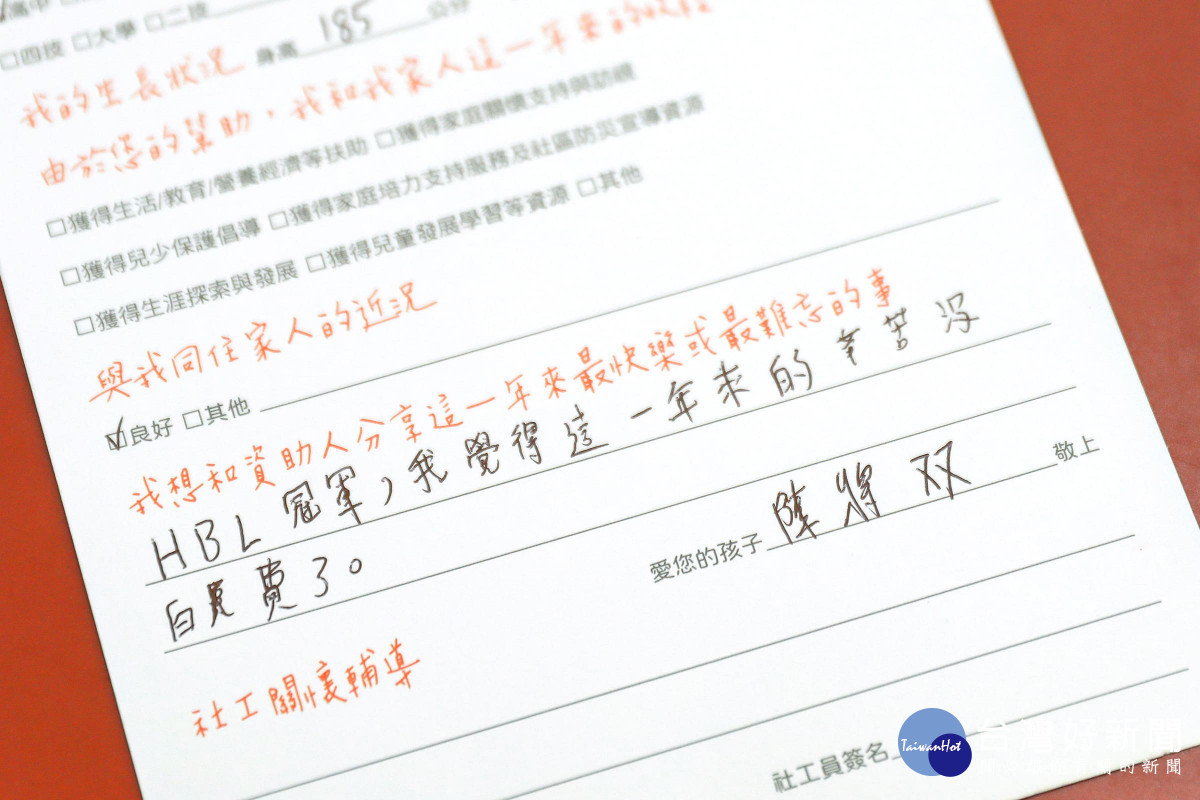 高中
□四技 □大學 □二技
身高 185 公分
我的生長狀況
由於您的幫助，我和我家人這一年來的
□獲得生活/教育/營養經濟等扶助 □獲得家庭關懷支持與訪視
□獲得兒少保護倡導 □獲得家庭培力支持服務及社區防災宣導資源
□獲得生涯探索與發展 □獲得兒童發展學習等資源 □其他
與我同住家人的近況
☑良好 □其他
我想和資助人分享這一年來最快樂或最難忘的事
HBL 冠軍，我覺得這一年來的辛苦沒
白費了。
愛您的孩子 陳將双 敬上
社工關懷輔導
社工員簽名
TaiwanHot
台灣好新聞
的新聞